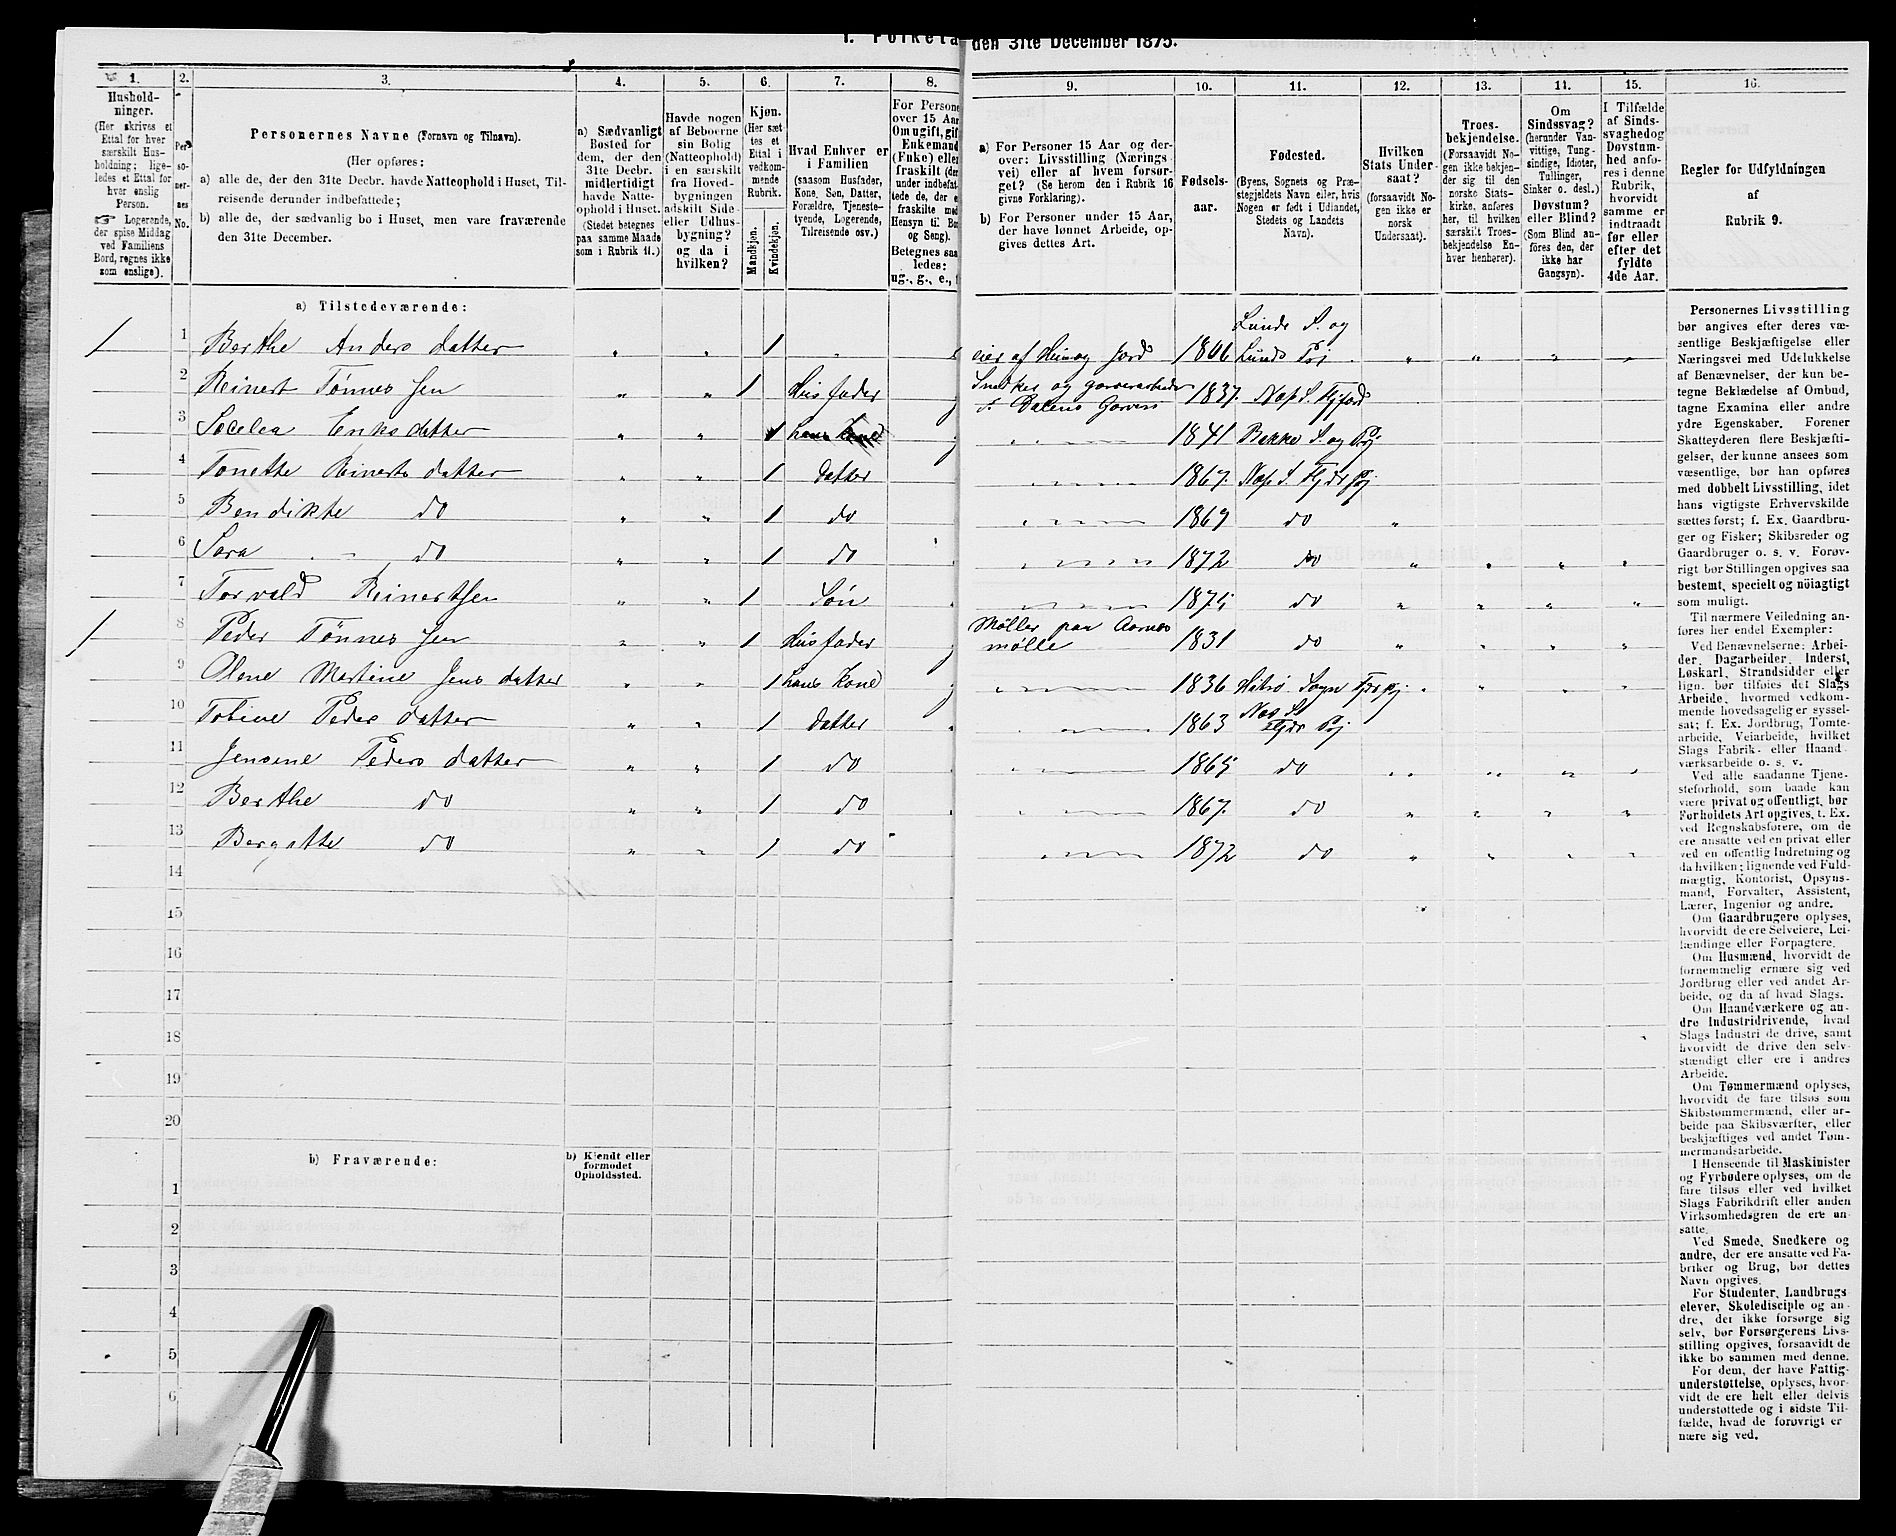 1. Folketæ
den 31te December 1875.
1.
2.
3.
4.
5.
6.
7.
8.
9.
10.
11.
12.
13.
14.
15.
16.
Hushold-
ninger.
(Her skrives et
Ettal for hver
særskilt Hus-
holdning; lige-
ledes et Ettal for
hver enslig
Person.
☞ Logerende,
der spise Middag
ved Familiens
Bord, regnes ikke
som enslige).
Per
so-
ner-
nes
No.
Personernes Navne (Fornavn og Tilnavn).
(Her opføres:
a) alle de, der den 31te Decbr. havde Natteophold i Huset, Til-
reisende derunder indbefattede;
b) alle de, der sædvanlig bo i Huset, men vare fraværende
den 31te December.
a) Sædvanligt
Bosted for
dem, der den
31te Decbr.
midlertidigt
havde Natte-
ophold i Huset.
(Stedet betegnes
paa samme Maade
som i Rubrik 11.)
Havde nogen
af Beboerne
sin Bolig
(Natteophold)
i en særskilt
fra Hoved-
bygningen
adskilt Side-
eller Udhus-
bygning?
og da i
hvilken?
Kjøn.
(Her sæt-
tes et
Ettal i
vedkom-
mende
Rubrik.
Mandkjøn.
Kvindekjøn.
Hvad Enhver er
i Familien
(saasom Husfader,
Kone, Søn, Datter,
Forældre, Tjeneste-
tyende, Logerende,
Tilreisende osv.)
For Persone
over 15 Aar
Om ugift, gif
Enkemand
(Enke) elle
fraskilt (der
under indbefat
tede de, der e
fraskilte med
Hensyn til Bo
og Seng).
Betegnes saa
ledes:
ug., g., e.,
a) For Personer 15 Aar og der-
over: Livsstilling (Nærings-
vei) eller af hvem forsør-
get? (Se herom den i Rubrik 16
givne Forklaring).
b) For Personer under 15 Aar,
der have lønnet Arbeide, op-
gives dettes Art.
Fødsels-
aar.
Fødested.
(Byens, Sognets og Præ-
stegjeldets Navn eller, hvis
Nogen er født i Udlandet,
Stedets og Landets
Navn).
Hvilken
Stats Under-
saat?
(forsaavidt No-
gen ikke er
norsk
Undersaat).
Troes-
bekjendelse.
(Forsaavidt No-
gen ikke bekjen-
der sig til den
norske Stats-
kirke, anføres
her, til hvilken
særskilt Troes-
bekjendelse En-
hver henhører).
Om
Sindssvag?
(herunder Van-
vittige, Tung-
sindige, Idioter,
Tullinger,
Sinker o. desl.)
Døvstum?
eller Blind?
(Som Blind an-
føres den, der
ikke har
Gangsyn).
I Tilfælde
af Sinds-
svaghedog
Døvstum-
hed anfø-
res i denne
Rubrik,
hvorvidt
samme er
indtraadt
før eller
efter det
fyldte
4de Aar.
Regler for Udfyldningen
af
Rubrik 9.
a) Tilstedeværende:
1 1 Berthe Anders datter " " 1 " eier af Hus og Jord 1806 Lunde S. og Lunds Pgj " " " "
2 Reinert Tønnes sen " " 1 Husfader Snedker og garverarbeider 1837. Næs S. Fjsord
3 Eriksdatter " " 1 hans Kone 1841 Bakke S. og Pgj
4 Tonette Reinerts datter " " 1 datter 1867. Næs S. Fjds Pgj
5 Bendikte do " " 1 do 1869 do "
6 Sara do " " 1 do 1872 do " " " "
7 Torvald Reinertsen " " 1 Søn 1875 do " " " "
1 8 Peder Tønnes sen " " 1 Husfader Møller paa Aarnes mølle 1831 do " " " "
9 Olene Martine Jens datter " " 1 hans Kone 1836 Hitterø Sogn Fjds pgj " " " "
10 Tobine Peders datter " " 1 datter 1863 Næs S. Fjds Pgj
11 Jensene Peders datter " " 1 do 1865 do " " " "
12 Berthe do " " 1 do 1867. do " " " "
13 Bergitte do " " 1 do 1872 do " " " "
14
15
16
17
18
19
20
b) Fraværende:
b) Kjendt eller
formodet
Opholdssted.
1
2
3
4
5
6
Personernes Livsstilling
bør angives efter deres væ-
sentlige Beskjæftigelse eller
Næringsvei med Udelukkelse
af Benævnelser, der kun be-
tegne Beklædelse af Ombud,
tagne Examina eller andre
ydre Egenskaber. Forener
Skatteyderen flere Beskjæfti-
gelser, der kunne ansees som
væsentlige, bør han opføres
med dobbelt Livsstilling, idet
hans vigtigste Erhvervskilde
sættes først; f. Ex. Gaardbru-
ger og Fisker; Skibsreder og
Gaardbruger o. s. v. Forøv-
rigt bør Stillingen opgives saa
bestemt, specielt og nöiagtigt
som muligt.
Til nærmere Veiledning an-
føres her endel Exempler:
Ved Benævnelserne: Arbei-
der, Dagarbeider, Inderst,
Løskarl, Strandsidder eller
lign. bør tilføies det Slags
Arbeide, hvormed vedkom-
mende hovedsagelig er syssel-
sat; f. Ex. Jordbrug, Tomte-
arbeide, Veiarbeide, hvilket
Slags Fabrik- eller Haand-
værksarbeide o. s. v.
Ved alle saadanne Tjene-
steforhold, som baade kan
være privat og offentligt, bør
Forholdets Art opgives, f. Ex.
ved Regnskabsførere, om de
ere ansatte ved en privat eller
ved en offentlig Indretning og
da hvilken; lignende ved Fuld-
mægtig, Kontorist, Opsyns-
mand, Forvalter, Assistent,
Lærer, Ingeniør og andre.
Om Gaardbrugere oplyses,
hvorvidt de ere Selveiere, Lei-
lændinge eller Forpagtere.
Om Husmænd, hvorvidt de
fornemmelig ernære sig ved
Jordbrug eller ved andet Ar-
beide, og da af hvad Slags.
Om Haandværkere og an-
dre Industridrivende, hvad
Slags Industri de drive, samt
hvorvidt de drive den selv-
stændigt eller ere i andres
Arbeide.
Om Tømmermænd oplyses,
hvorvidt de fare tilsøs som
Skibstømmermænd, eller ar-
beide paa Skibsværfter, eller
beskjæftiges ved andet Tøm-
mermandsarbeide.
I Henseende til Maskinister
og Fyrbødere oplyses, om de
fare tilsøs eller ved hvilket
Slags Fabrikdrift eller anden
Virksomhedsgren de ere an-
satte.
Ved Smede, Snedkere og
andre, der ere ansatte ved Fa-
briker og Brug, bør dettes
Navn opgives.
For Studenter, Landbrugs-
elever, Skoledisciple og an-
dre, der ikke forsørge sig
selv, bør Forsørgerens Livs-
stilling opgives, forsaavidt de
ikke bo sammen med denne.
For dem, der have Fattig-
understøttelse, oplyses, hvor-
vidt de ere helt eller delvis
understøttede og i sidste Til-
fælde, hvad de forøvrigt er-
nære sig ved.